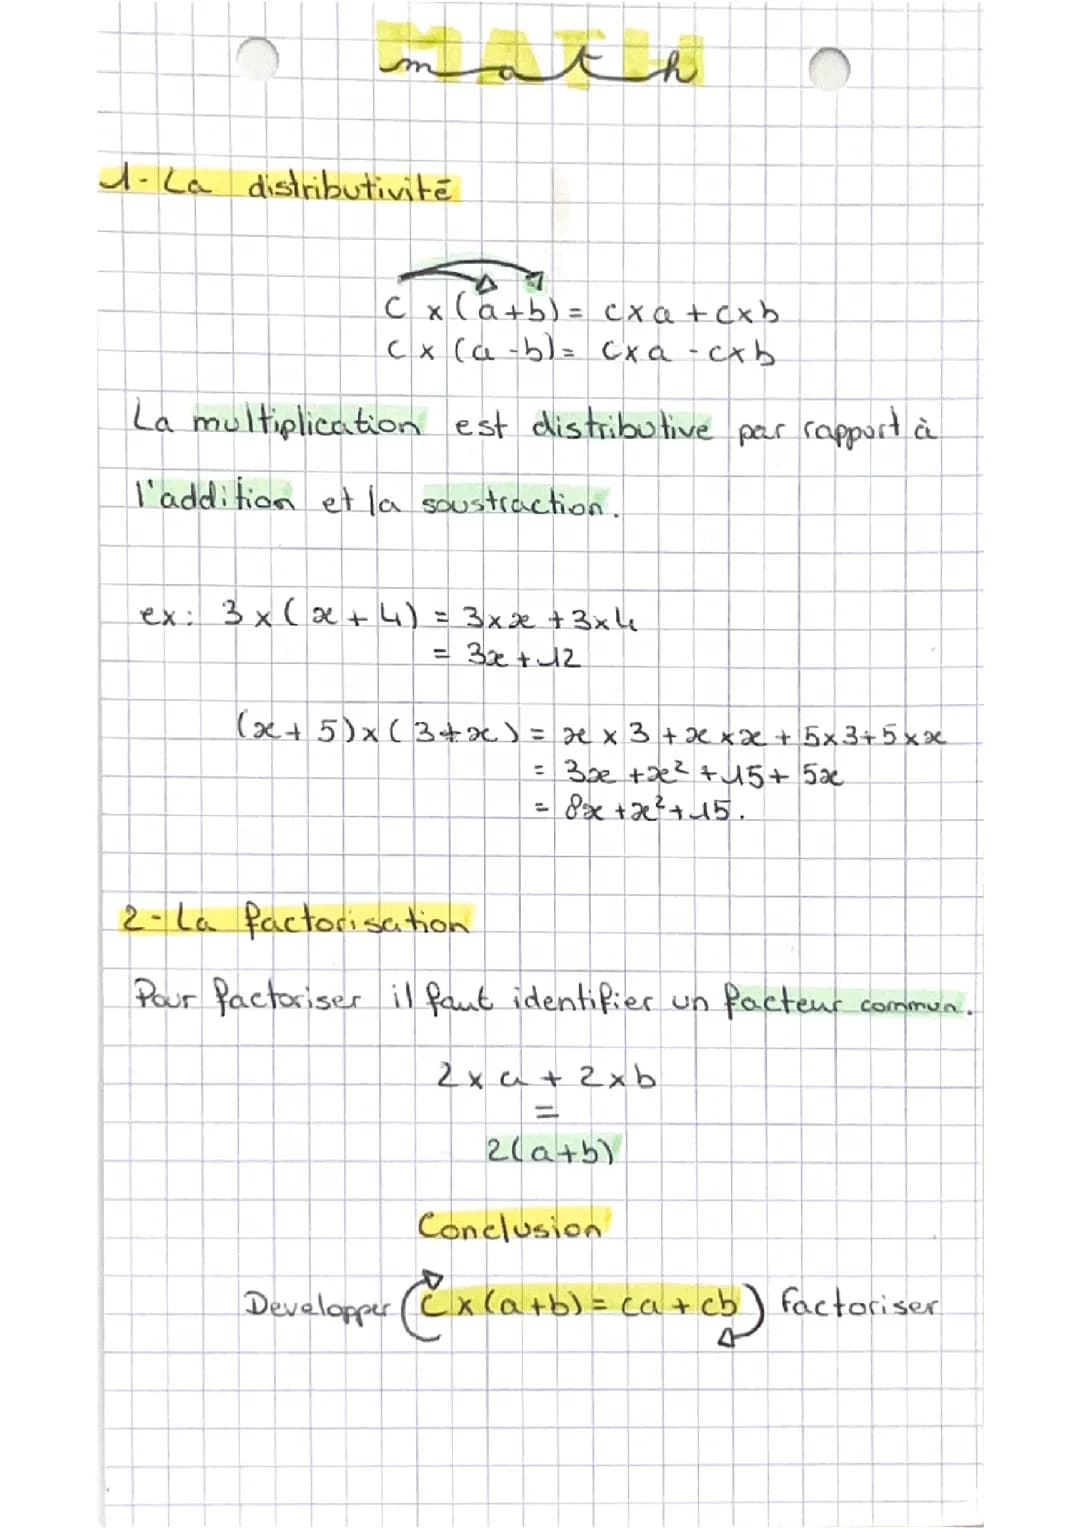 MATH
math
1-La distributivité
c x (a+b) = cxa + cxb
c x (a-b) = cxa - cxb
La multiplication est distributive par rapport à
l'addition et la soustraction.
ex: 3 x (x + 4) = 3xx + 3x4
= 3x + 12
(x + 5) x (3 + x) = x x 3 + x x x + 5x3 + 5xx
= 3x + x² + 15 + 5x
= 8x + x² + 15.
2-La factorisation
Pour factoriser il faut identifier un facteur commun.
2 x a + 2 x b
=
2(a+b)
Conclusion
Developper (c x (a+b) = ca + cb) factoriser